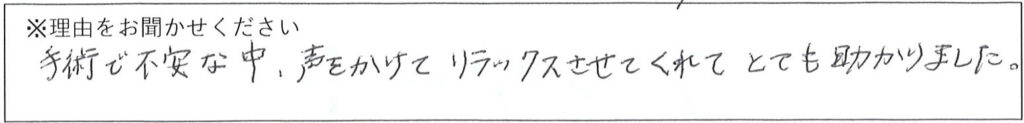 ※理由をお聞かせください
手術で不安な中、声をかけてリラックスさせてくれてとても助かりました。